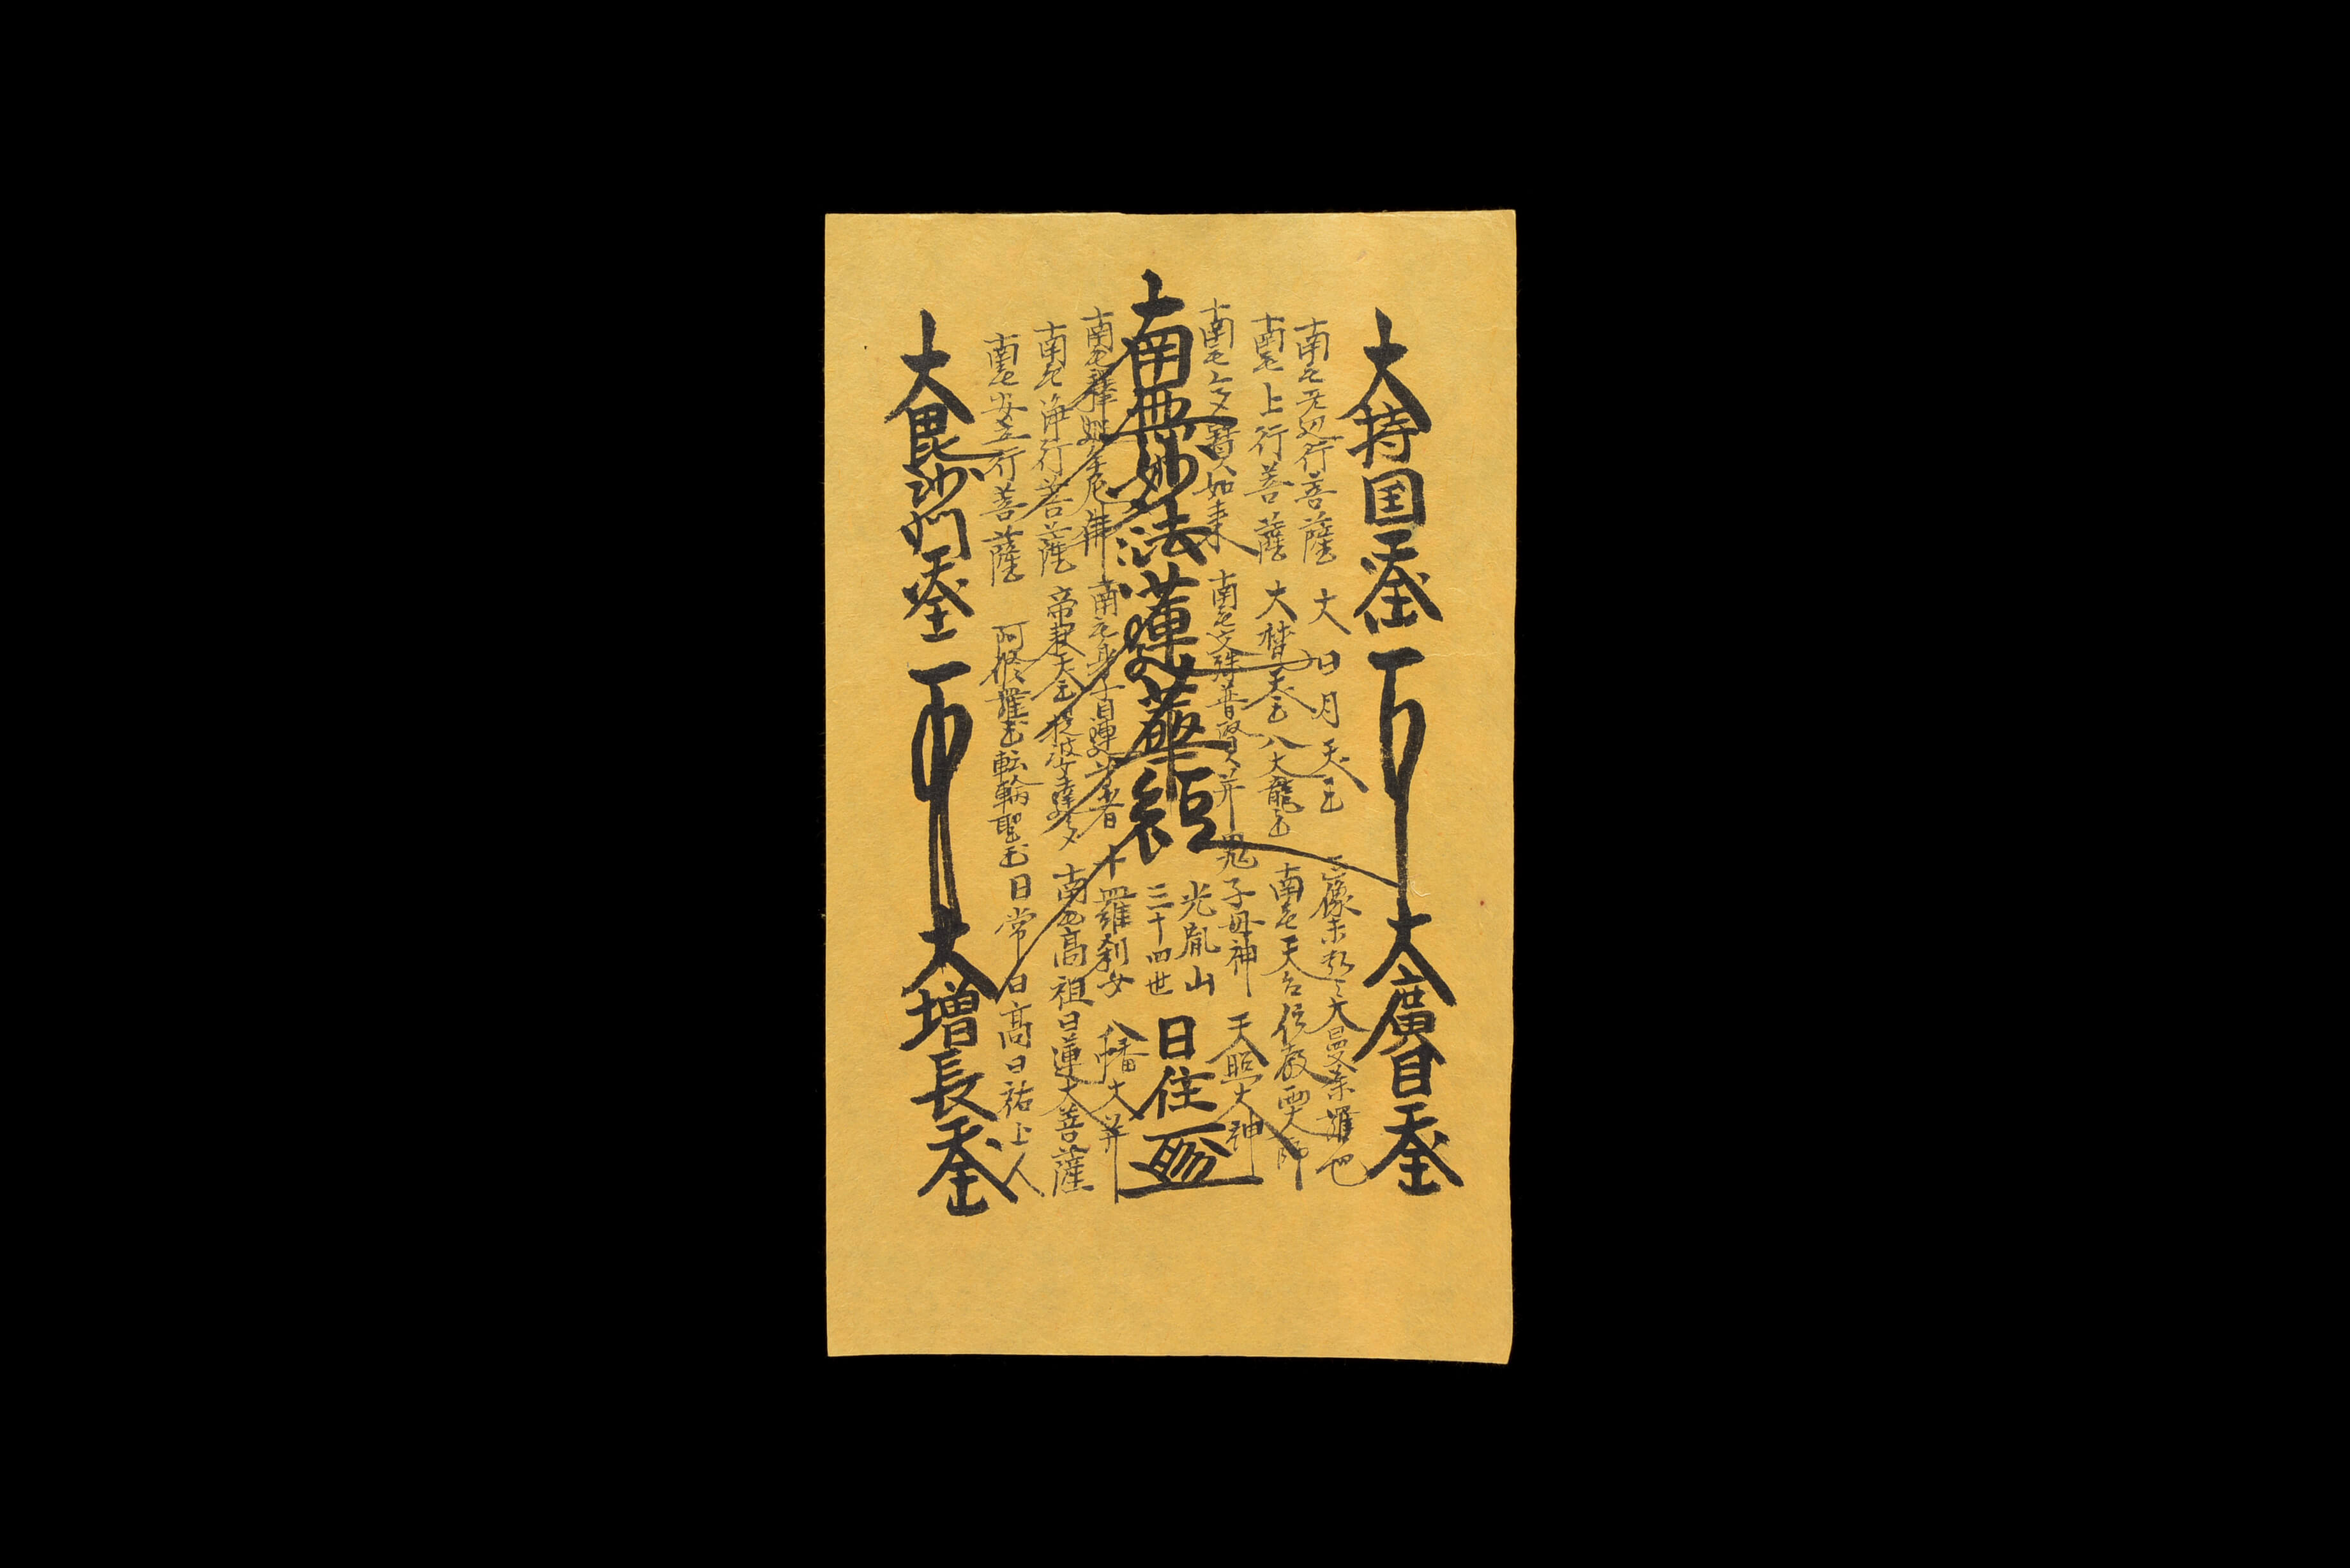 大持国天王
大廣目天王
南无无辺行菩薩
大日月天王
大曼荼羅也
南无上行菩薩
大梵天王
八大龍王
南无天台伝教両大師
南无多寳如来
南无文殊普賢并
鬼子母神
天照大神
南無妙法蓮華経
光胤山
三十四世
日住
南无釋迦牟尼佛
南无身子目連尊者
十羅刹女
八幡大并
南无浄行菩薩
帝釈天王
提婆達多
南无高祖日蓮大菩薩
南无安立行菩薩
阿修羅王
転輪聖王
日常日高日祐上人
大毘沙門天王
大増長天王